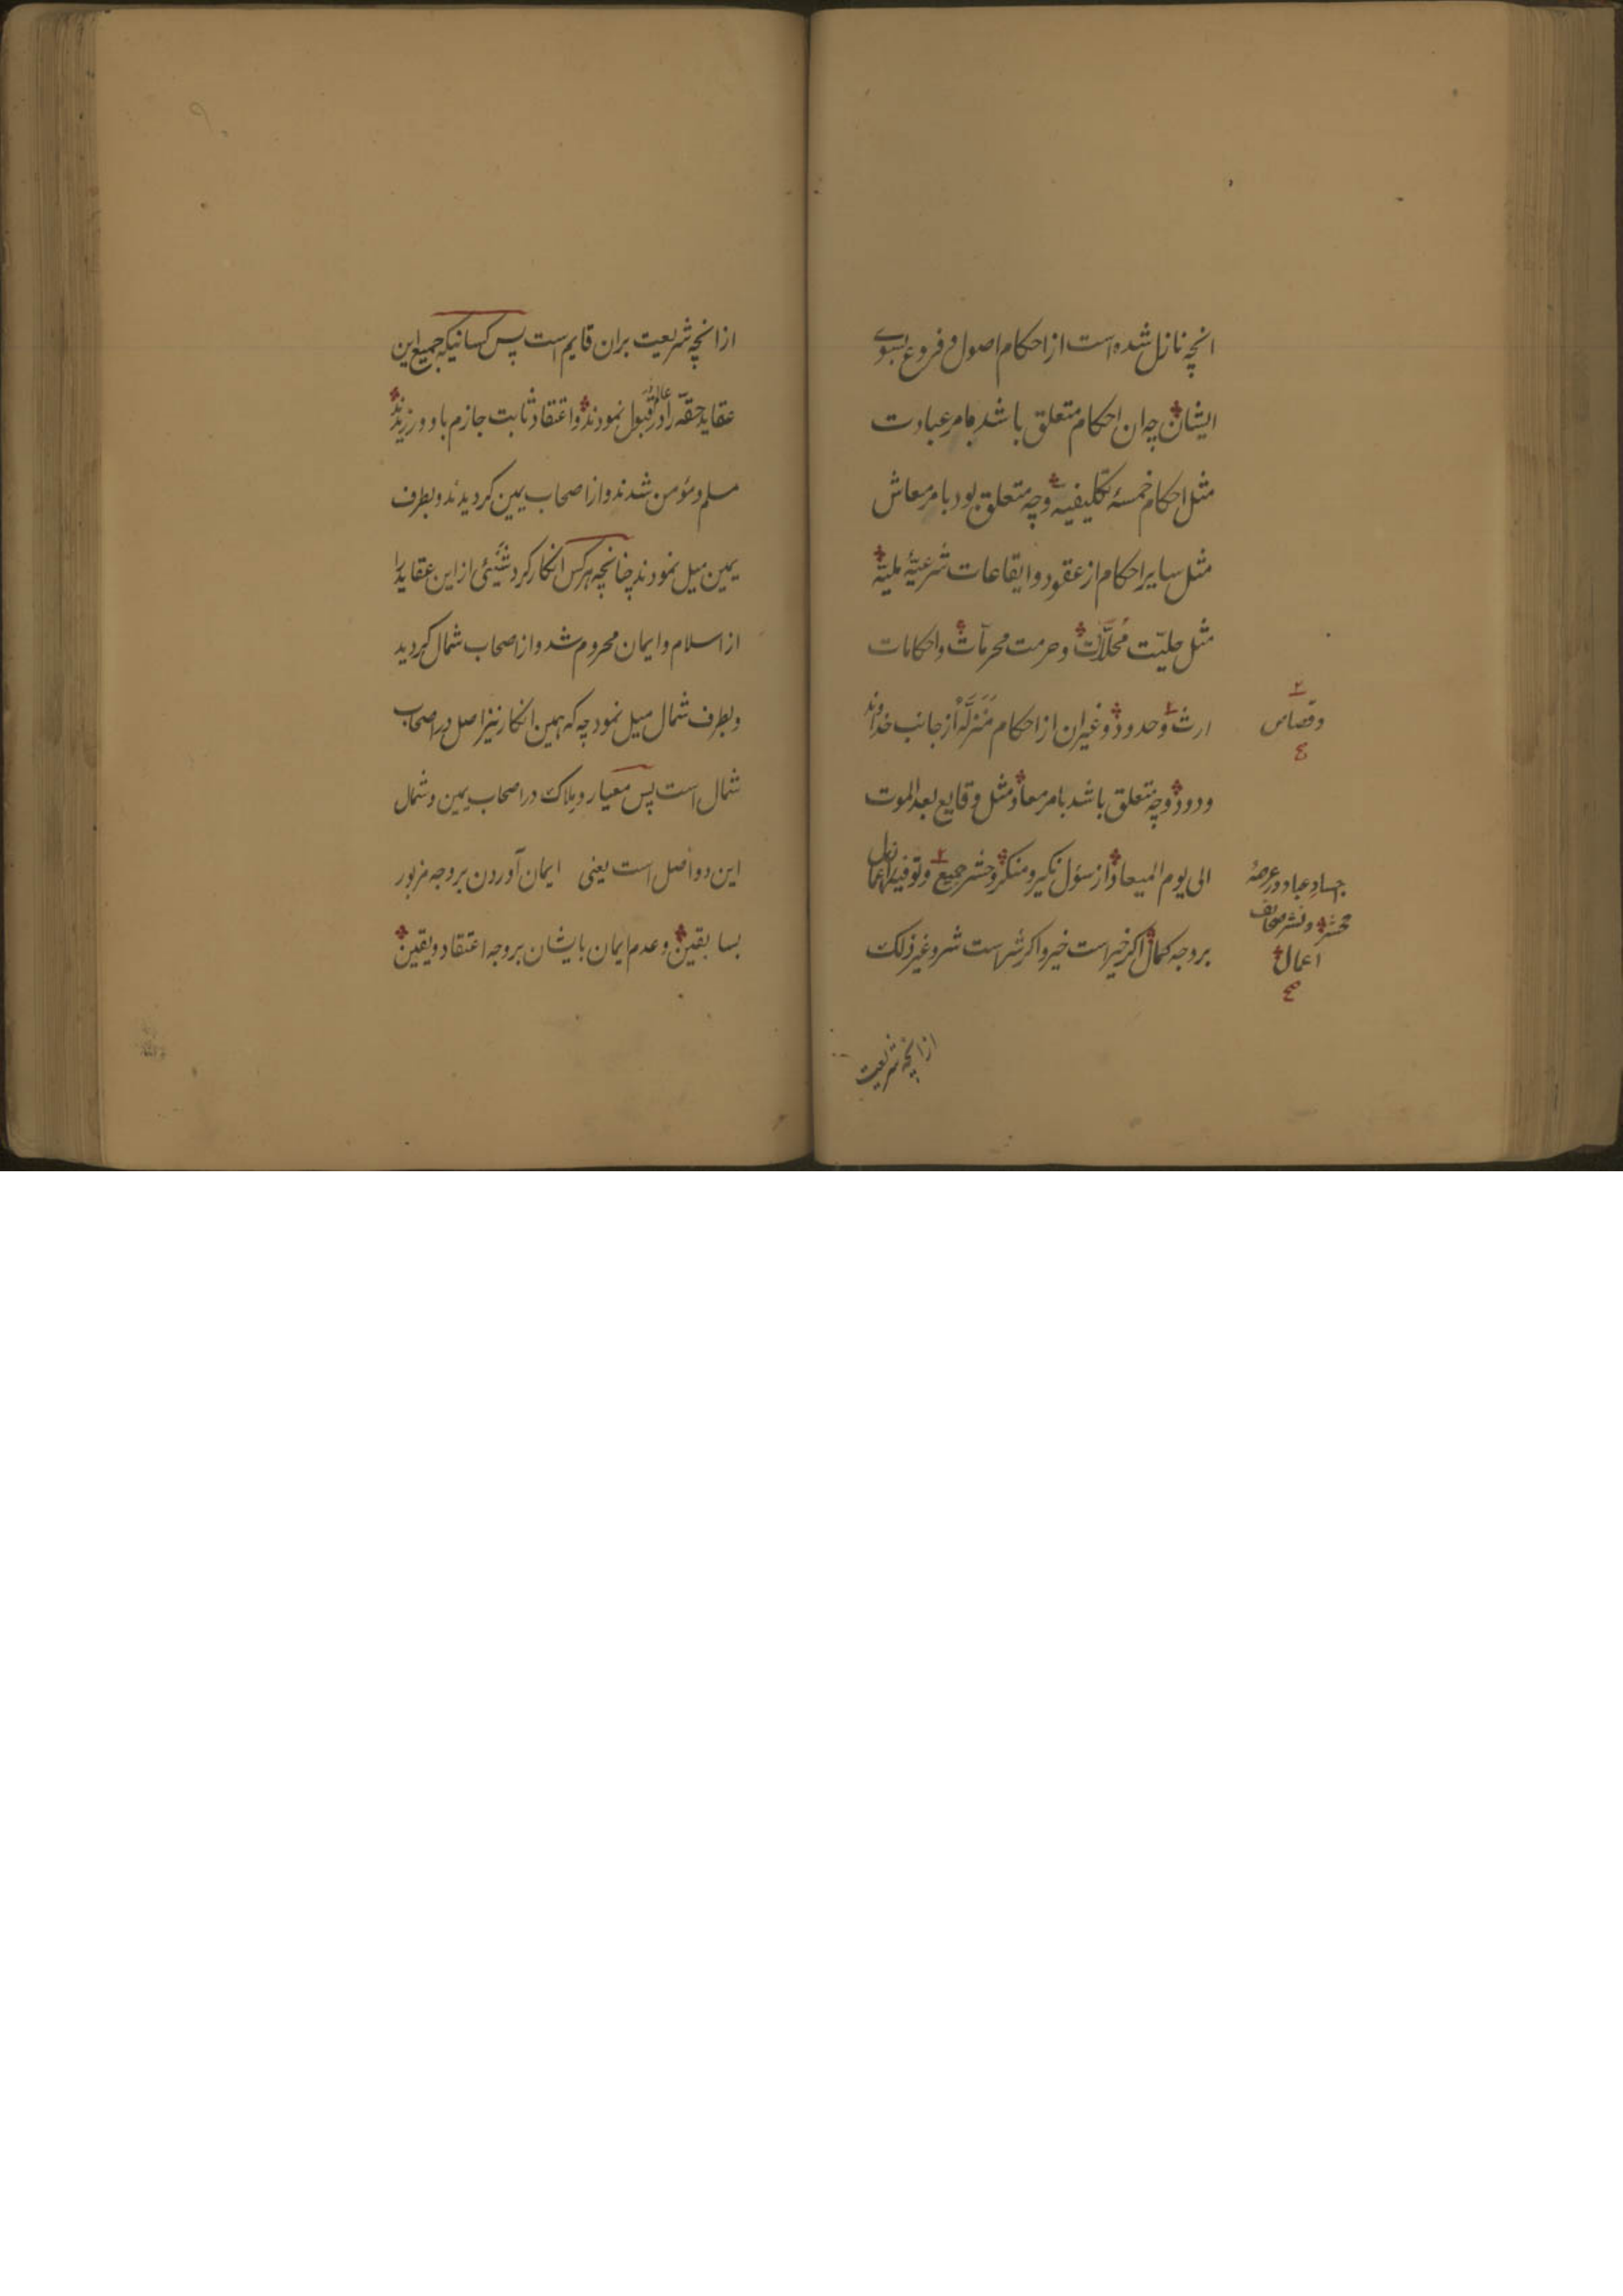 انچه نازل شده است از احکام اصول و فروع بسوی
ایشان چه ان احکام متعلق باشد بامر عبادت
مثل احکام خمسهٔ تکلیفیه وچه متعلق بود بامر معاش
مثل سایر احکام از عقود و ایقاعات شرعیّهٔ ملیّه
مثل حلیّت مُحلَّلات وحرمت محرمات واحکامات
ارث وحدود وغیران از احکام مُنَزَلَهٔ از جانب خداوند
وقصاص
ودود وچه متعلق باشد بامر معاد مثل وقایع بعدالموت
الی یوم المیعاد از سؤل نکیر ومنکر وحشر جمیع وتوفیه
اجساد عباد در عرصهٔ
محشر ونشر صحائف
اعمال
بروجه کمال اکر خیر است خیر واکر شر است شر وغیر ذلک
از انچه شریعت
از انچه شریعت بران قایم است پس کسانیکه جمیع این
عقاید حقّه را در قبول نمودند واعتقاد ثابت جازم باو ورزیدند
مسلم ومؤمن شدند واز اصحاب یمین کردیدند وبطرف
یمین میل نمودند چنانچه هر کس انکار کرد شیئی از این عقاید را
از اسلام وایمان محروم شد واز اصحاب شمال کردید
وبطرف شمال میل نمود چه که همین انکار نیز اصل در اصحاب
شمال است پس معیار وملاک در اصحاب یمین وشمال
این دو اصل است یعنی ایمان آوردن بروجه مزبور
بسابقین وعدم ایمان بایشان بروجه اعتقاد ویقین